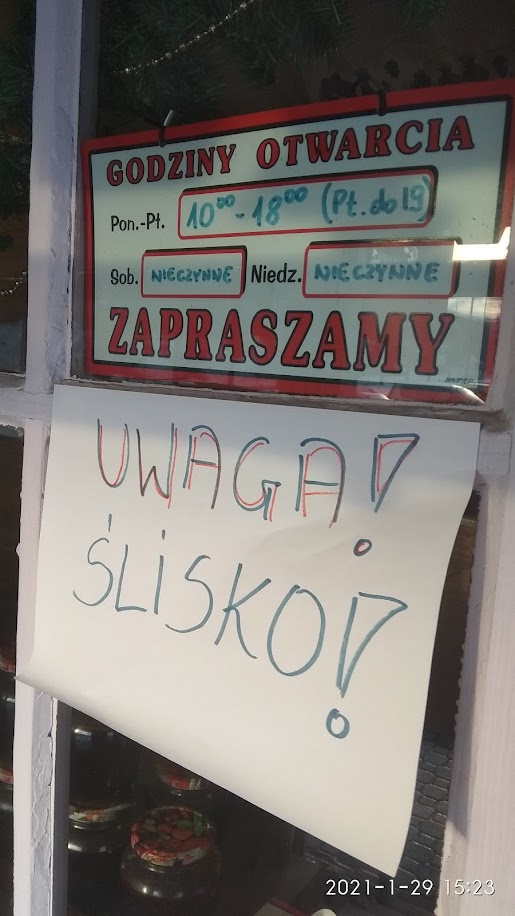 GODZINY OTWARCIA
Pon.-Pt. 10⁰⁰-18⁰⁰ (Pt. do 19)
Sob. NIECZYNNE Niedz. NIECZYNNE
ZAPRASZAMY
UWAGA!
ŚLISKO!
2021-1-29 15:23